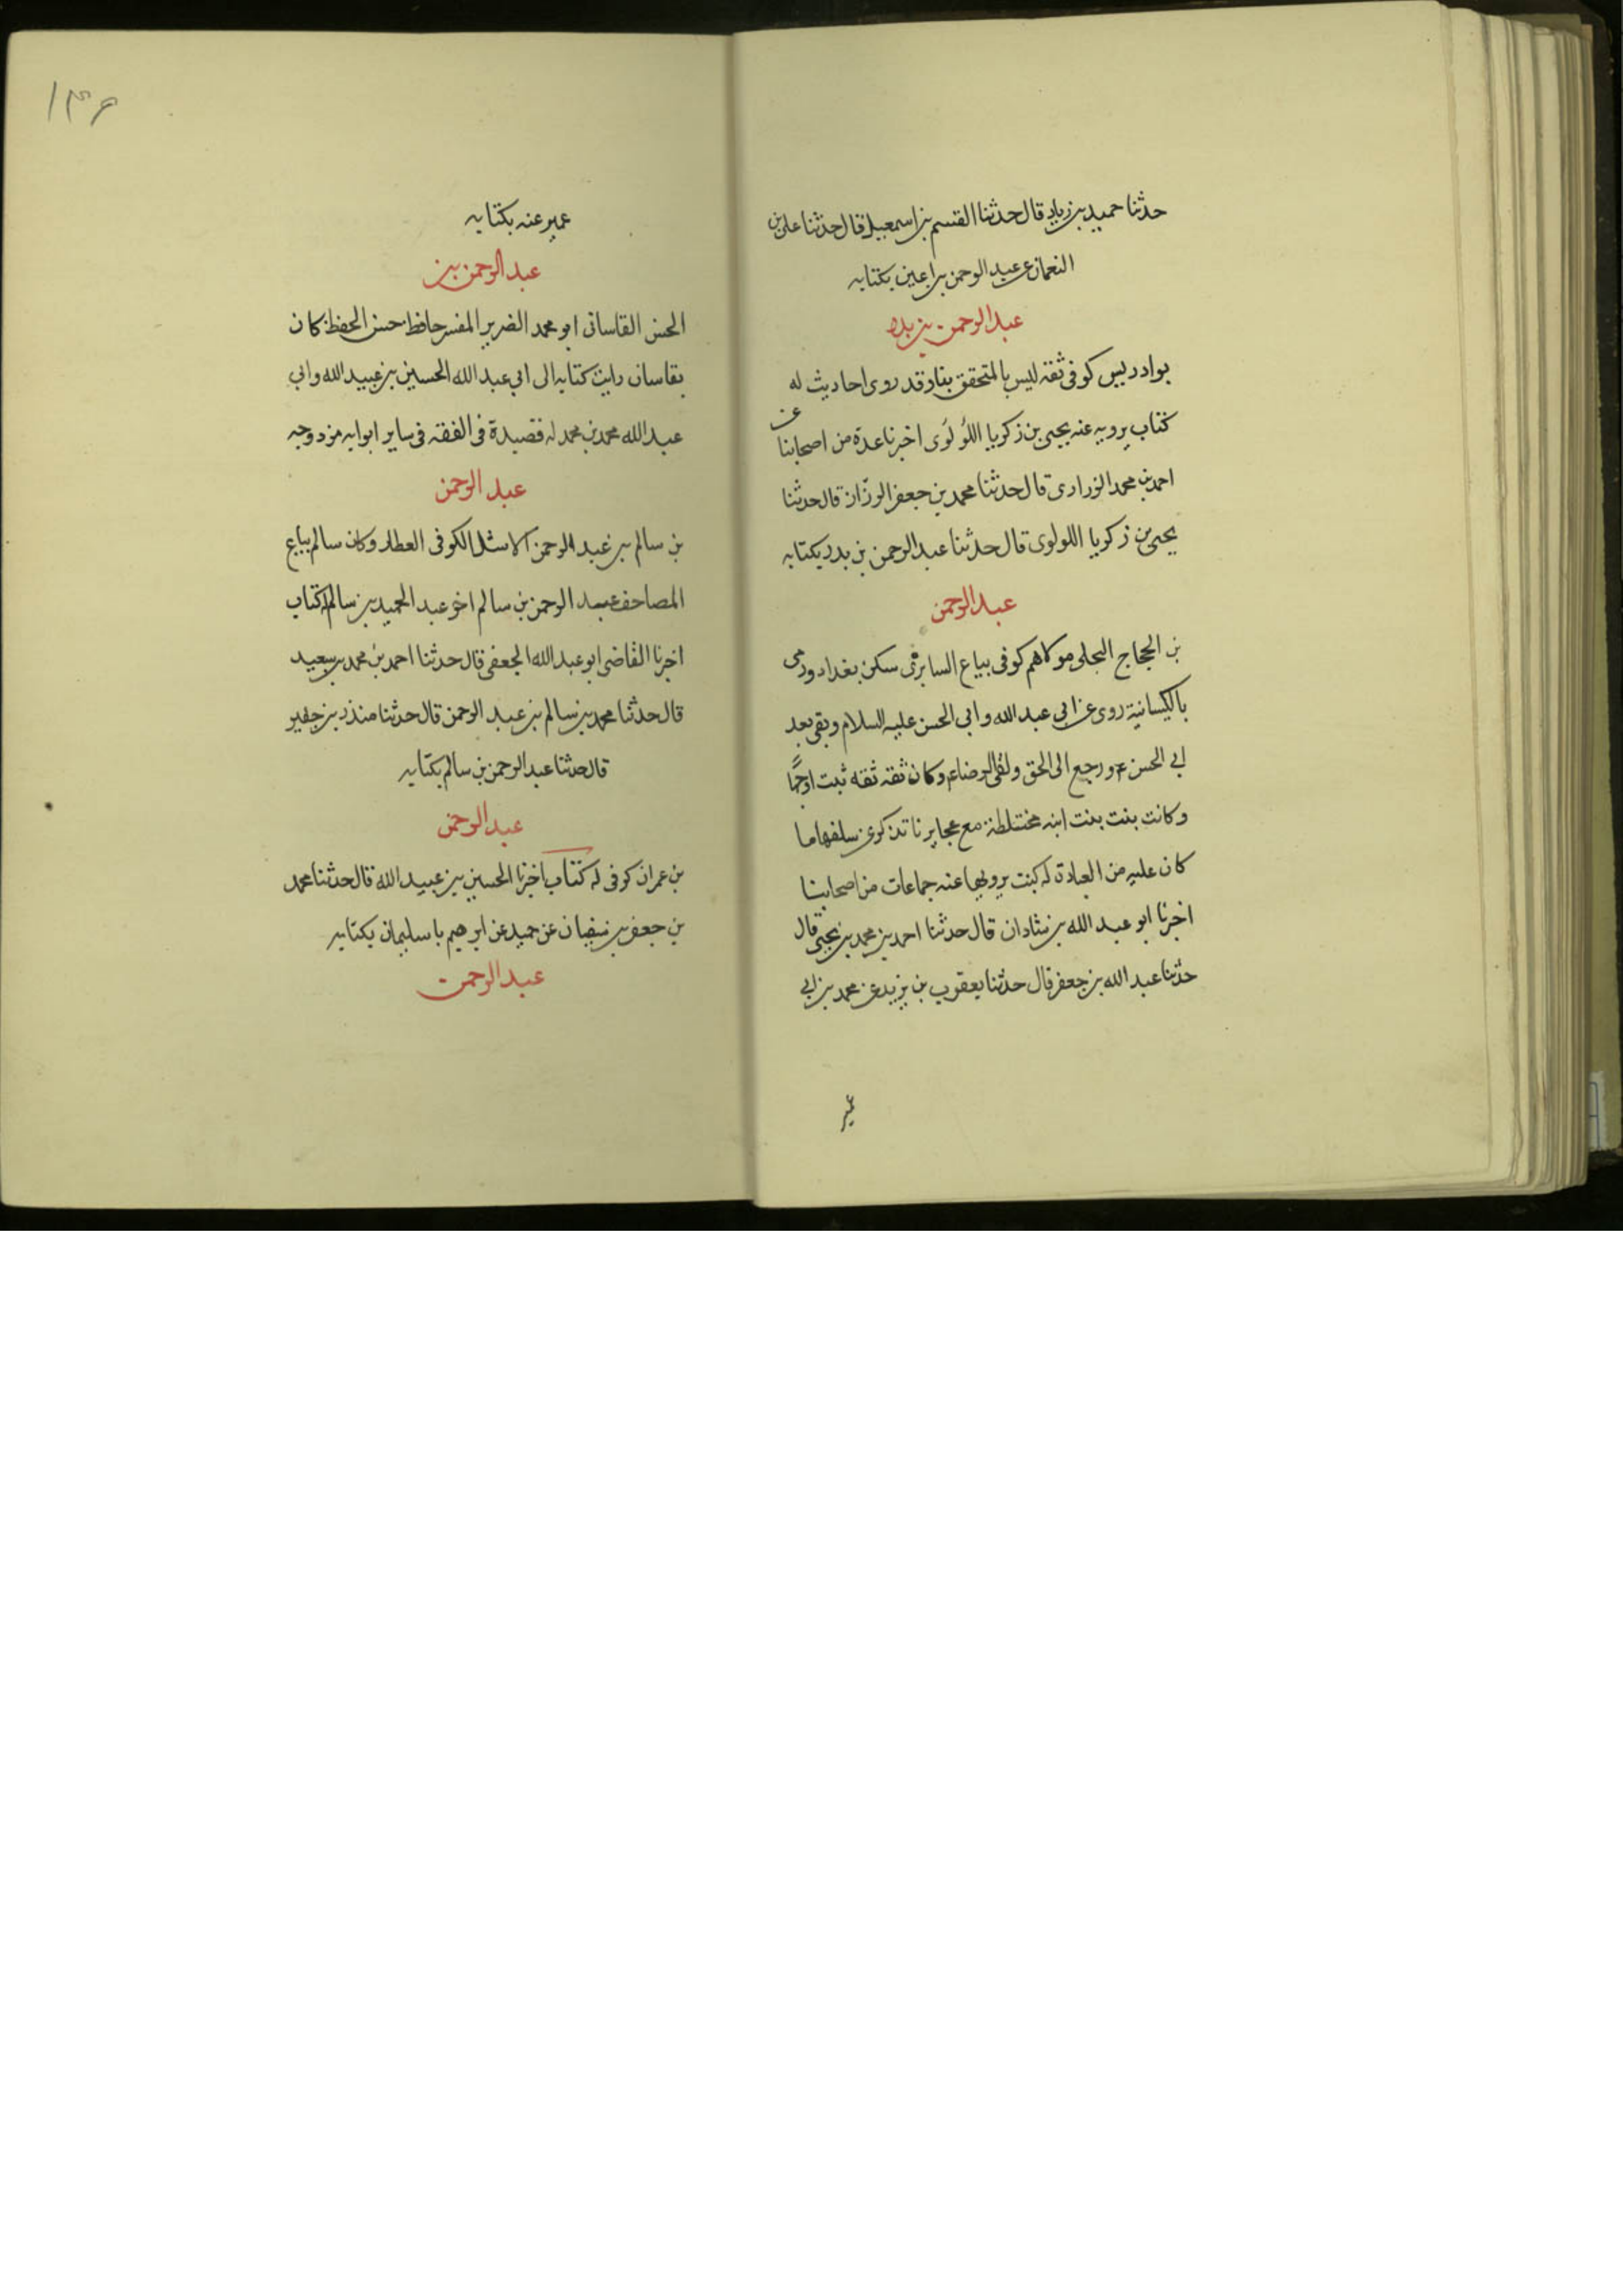 حدثنا حميد بن زياد قال حدثنا القسم بن اسمعيل قال حدثنا على بن
النعمان عن عبد الرحمن بن اعين بكتابه
عبد الرحمن بن بدر
بو ادريس كوفى ثقه ليس بالمتحقق بنا وقد روى احاديث له
كتاب يرويه عنه يحيى بن زكريا اللؤلؤى اخبرنا عدة من اصحابنا عن
احمد بن محمد الزرارى قال حدثنا محمد بن جعفر الرزاز قال حدثنا
يحيى بن زكريا اللولوى قال حدثنا عبد الرحمن بن بدر بكتابه
عبد الرحمن
بن الحجاج البجلى مولاهم كوفى بياع السابرى سكن بغداد ورمى
بالكيسانية روى عن ابى عبد الله وابى الحسن عليه السلام وبقى بعد
ابى الحسن ع ورجع الى الحق ولقى الرضا ع وكان ثقة ثقه ثبت اوجها
وكانت بنت بنت ابنه مختلطة مع عجايزنا تذكر عن سلفها ما
كان عليه من العبادة له كتب يرويها عنه جماعات من اصحابنا
اخبرنا ابو عبد الله بن شاذان قال حدثنا احمد بن محمد بن يحيى قال
حدثنا عبد الله بن جعفر قال حدثنا يعقوب بن يزيد عن محمد بن ابى
عمير
١٣۶
عمير عنه بكتابه
عبد الرحمن بن
الحسن القاسانى ابو محمد الضرير المفسر حافظ حسن الحفظ كان
بقاسان رايت كتابه الى ابى عبد الله الحسين بن عبيد الله وابى
عبد الله محمد بن محمد له قصيدة فى الفقه فى ساير ابوابه مزدوجه
عبد الرحمن
بن سالم بن عبد الرحمن الاشل الكوفى العطار وكان سالم بياع
المصاحف عبد الرحمن بن سالم اخو عبد الحميد بن سالم له كتاب
اخبرنا القاضى ابو عبد الله الجعفى قال حدثنا احمد بن محمد بن سعيد
قال حدثنا محمد بن سالم بن عبد الرحمن قال حدثنا منذر بن جفير
قال حدثنا عبد الرحمن بن سالم بكتابه
عبد الرحمن
بن عمران كوفى له كتاب اخبرنا الحسين بن عبيد الله قال حدثنا محمد
بن جعفر بن سفيان عن حميد عن ابرهيم با سليمان بكتابه
عبد الرحمن